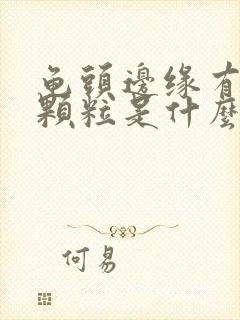 龟頭邊缘有
顆粒是什麼
何易